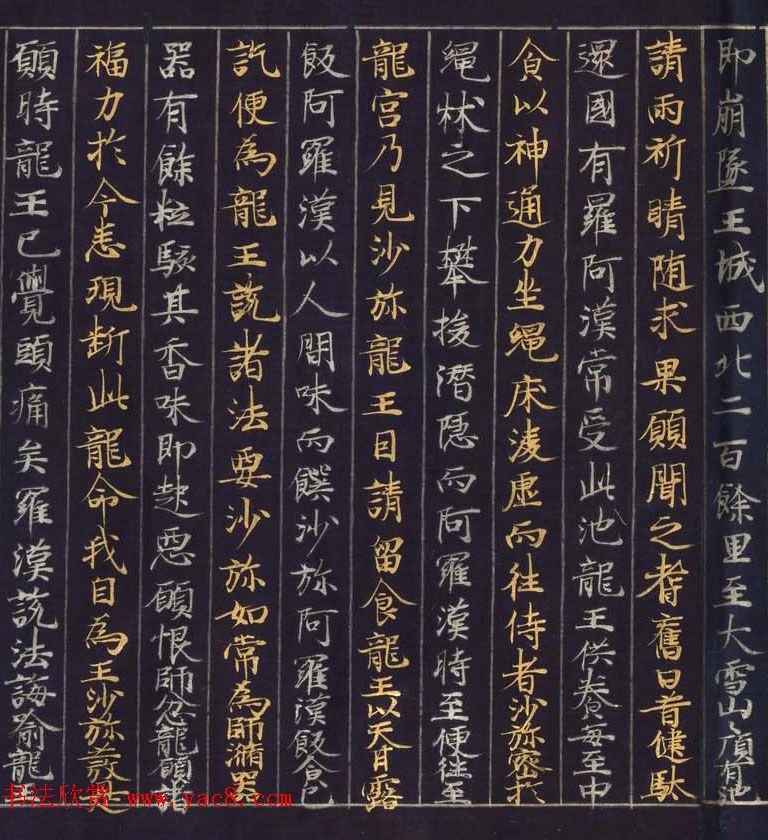 即崩墜王城西北二百餘里至大雪山山頂有池
請雨祈晴随求果願聞之耆舊曰昔健馱
邏國有羅阿漢常受此池龍王供養每至中
食以神通力坐繩床淩虛而往侍者沙弥密於
繩牀之下攀援潛隱而阿羅漢時至便往至
龍宮乃見沙弥龍王因請留食龍王以天甘露
飯阿羅漢以人間味而饌沙弥阿羅漢飯食已
訖便為龍王說諸法要沙弥如常為師滌器
器有餘粒駭其香味即起惡願恨師忿龍願諸
福力於今悉現断此龍命我自為王沙弥發是
願時龍王已覺頭痛矣羅漢說法誨喻龍
书法欣赏 www.yac8.com